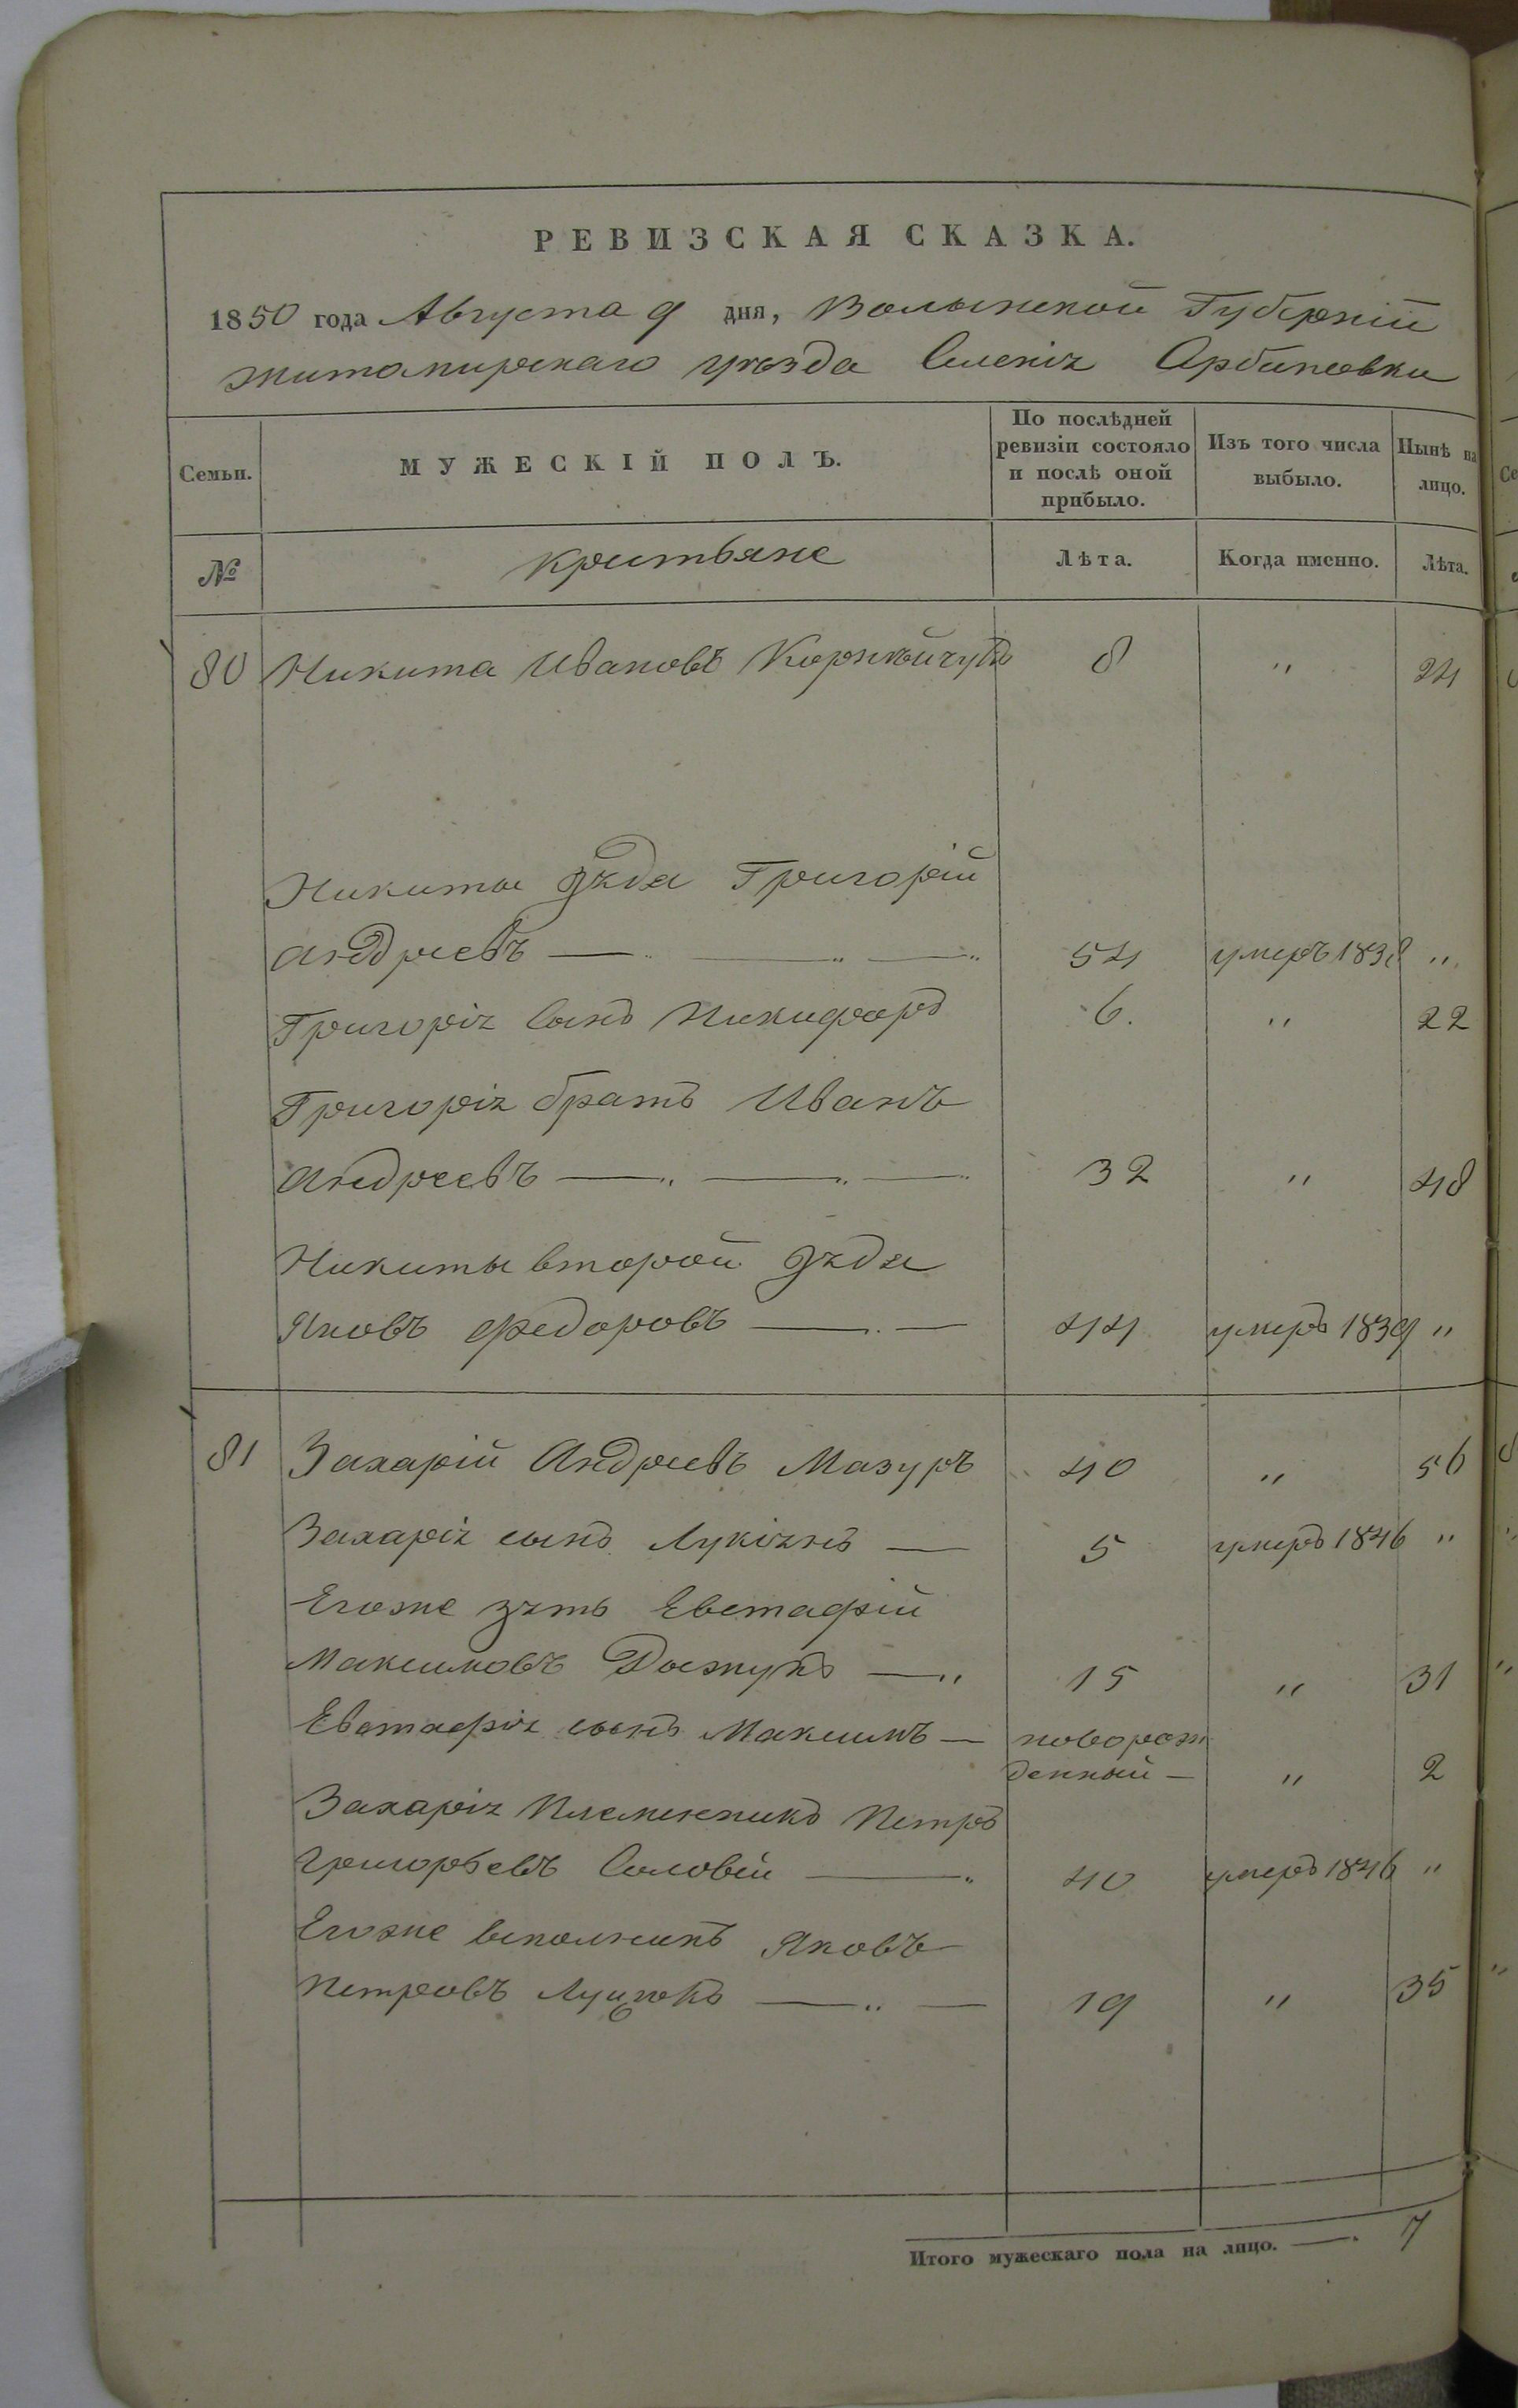 РЕВИЗСКАЯ СКАЗКА.
1850 года Августа 9 дня, Волынской Губерніи
Житомирскаго уѣзда Селенія Арбиновки
Семьи.
МУЖЕСКІЙ ПОЛЪ.
По послѣдней ревизіи состояло и послѣ оной прибыло.
Изъ того числа выбыло.
Нынѣ на лицо.
№
Крестьяне
Лѣта.
Когда именно.
Лѣта.
80 Никита Ивановъ 8 " 24
Никиты дядя Григорій
Андреевъ 54 умеръ 1838 "
Григорія Сынъ Никифоръ 6. " 22
Григорія братъ Иванъ
Андреевъ 32 " 48
Никиты второй дядя
Яковъ Федоровъ 44 умеръ 1839 "
81 Захарій Андреевъ Мазуръ 40 " 56
Захарія сынъ Лукіянъ 5 умеръ 1846 "
Егоже зять Евстафій
Максимовъ 15 " 31
Евстафія сынъ Максимъ новорож
денный " 2
Захарія Племенникъ Петръ
Григорьевъ Соловей 40 умеръ 1846 "
Егоже Яковъ
Петровъ 19 " 35
Итого мужескаго пола на лицо. 7